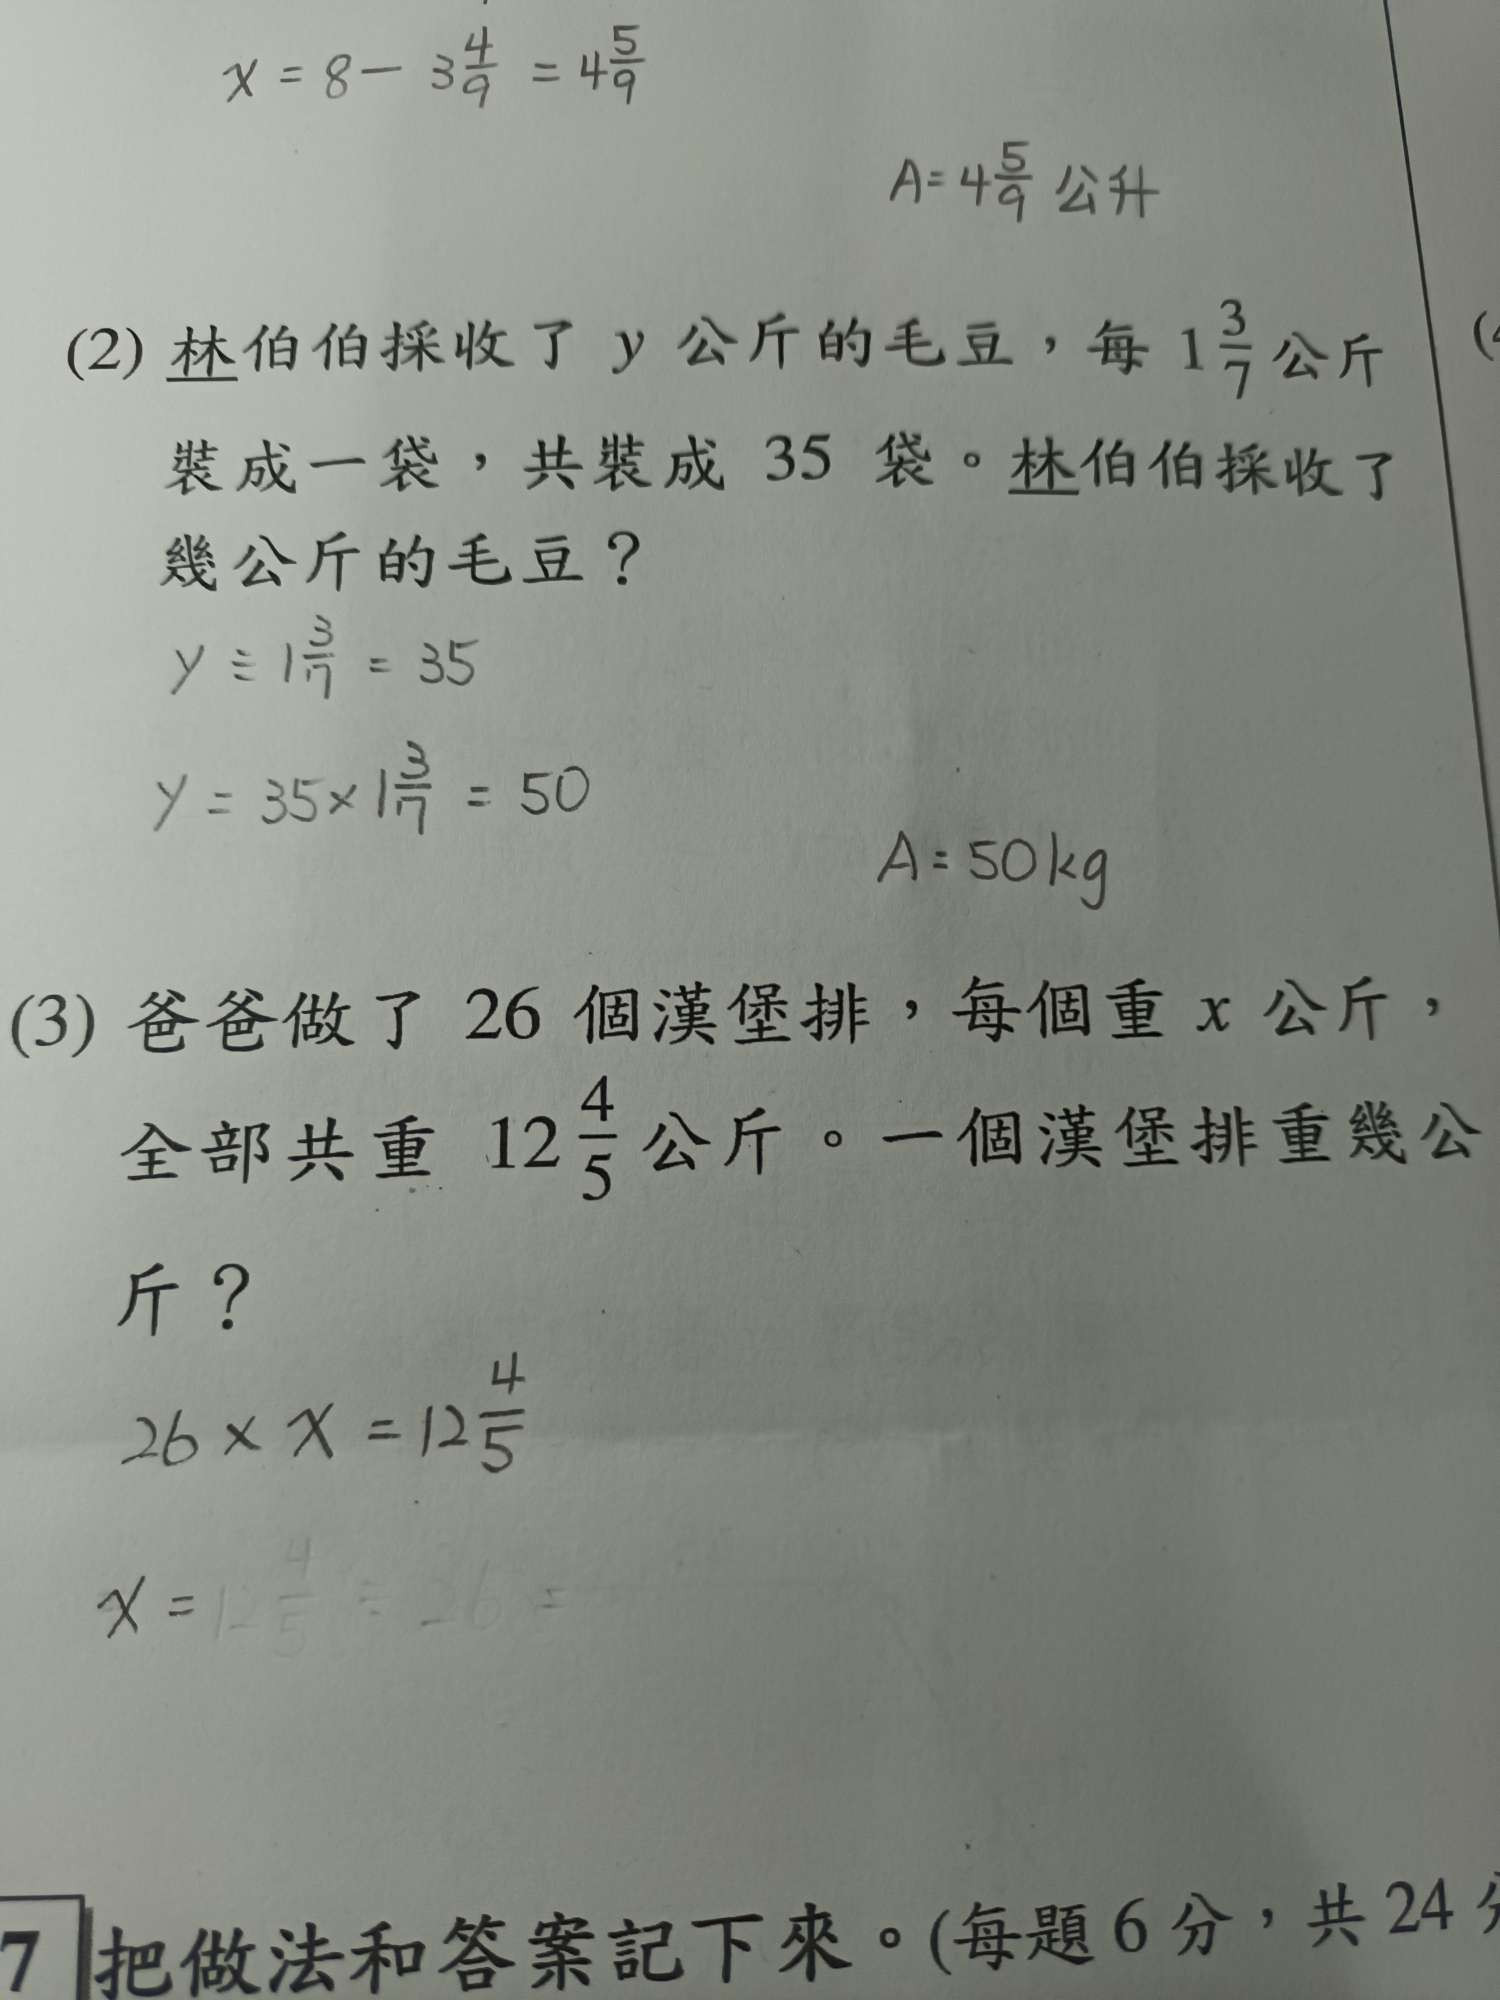 x = 8 - 3 4/9 = 4 5/9
A = 4 5/9 公升
(2) 林伯伯採收了 y 公斤的毛豆，每 1 3/7 公斤
裝成一袋，共裝成 35 袋。林伯伯採收了
幾公斤的毛豆？
y ÷ 1 3/7 = 35
y = 35 × 1 3/7 = 50
A = 50 kg
(3) 爸爸做了 26 個漢堡排，每個重 x 公斤，
全部共重 12 4/5 公斤。一個漢堡排重幾公
斤？
26 × x = 12 4/5
x = 12 4/5 ÷ 26 =
7 把做法和答案記下來。(每題 6 分，共 24